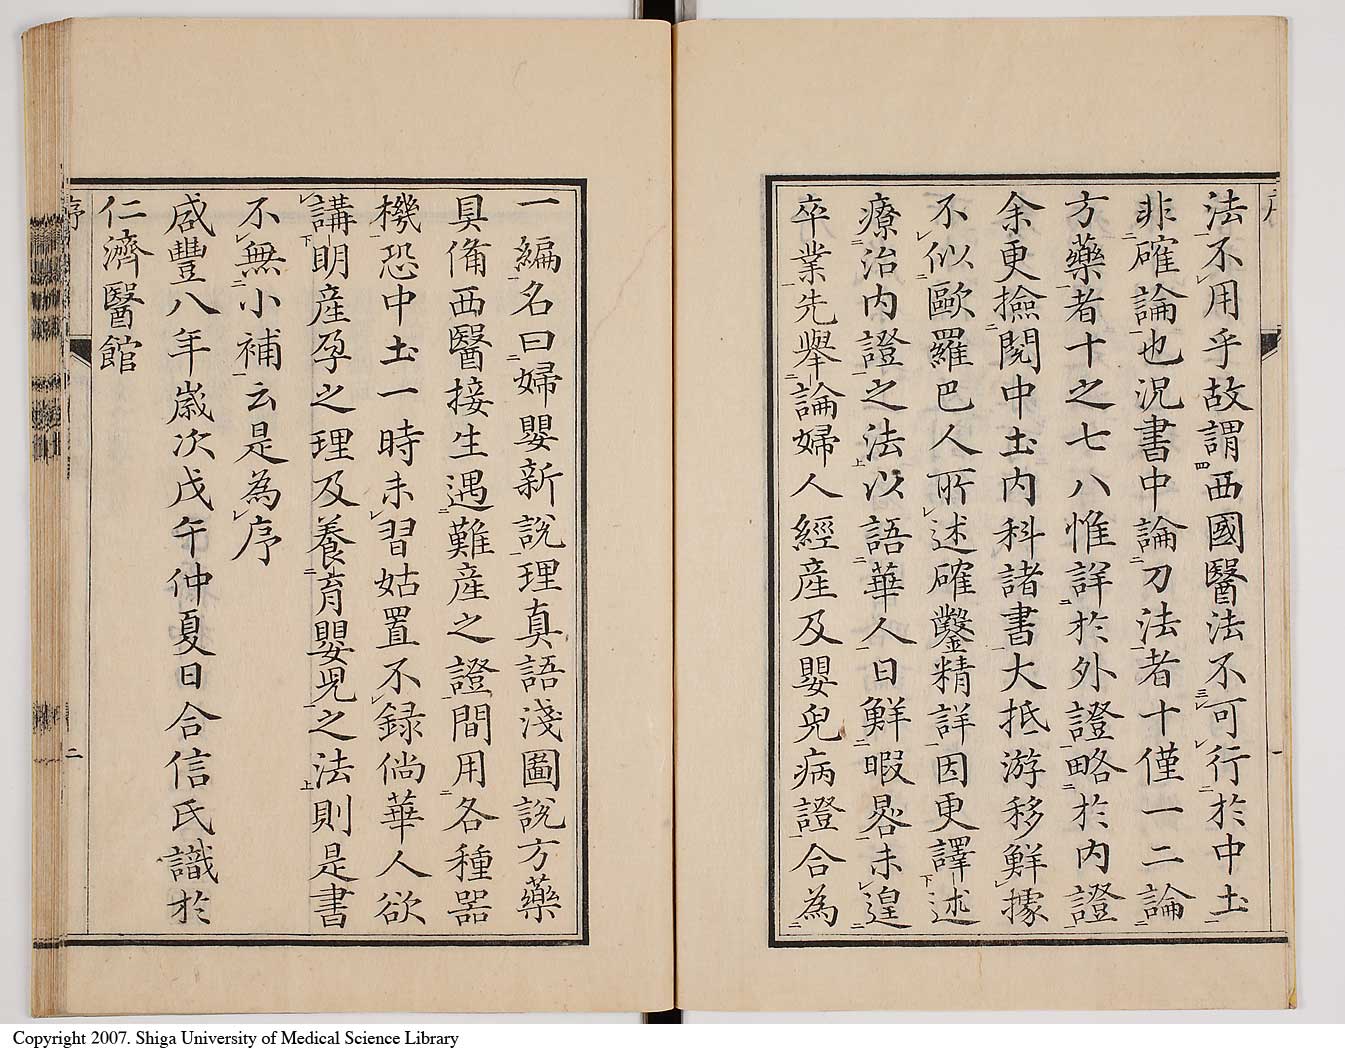 法不用乎故謂西國醫法不可行於中土
非確論也況書中論刀法者十僅一二論
方藥者十之七八惟詳於外證略於內證
余更撿閱中土內科諸書大抵游移鮮據
不似歐羅巴人所述確鑿精詳因更譯述
療治內證之法以語華人日鮮暇晷未遑
卒業先舉論婦人經產及嬰兒病證合為
一編名曰婦嬰新說理真語淺圖說方藥
具備西醫接生遇難產之證間用各種器
機恐中土一時未習姑置不録倘華人欲
講明產孕之理及養育嬰児之法則是書
不無小補云是為序
咸豐八年歲次戊午仲夏日合信氏識於
仁濟醫館
序
二
Copyright 2007. Shiga University of Medical Science Library